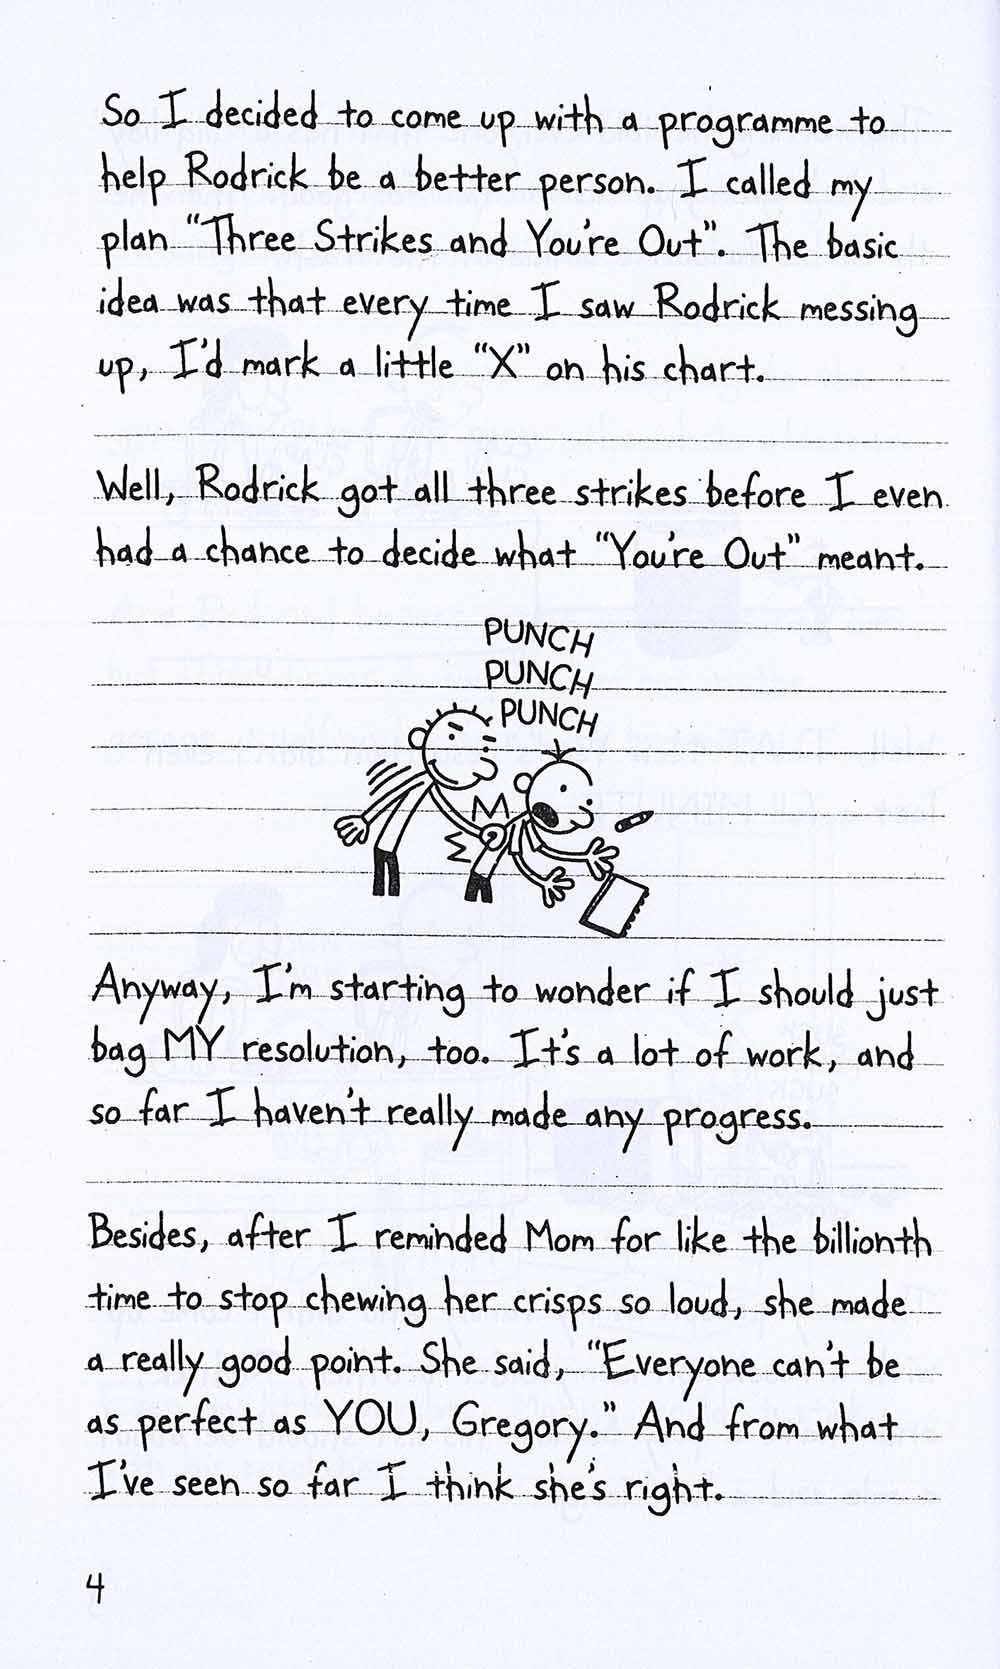 So I decided to come up with a programme to
help Rodrick be a better person. I called my
plan "Three Strikes and You're Out". The basic
idea was that every time I saw Rodrick messing
up, I'd mark a little "X" on his chart.
Well, Rodrick got all three strikes before I even
had a chance to decide what "You're Out" meant.
PUNCH
PUNCH
PUNCH
Anyway, I'm starting to wonder if I should just
bag MY resolution, too. It's a lot of work, and
so far I haven't really made any progress.
Besides, after I reminded Mom for like the billionth
time to stop chewing her crisps so loud, she made
a really good point. She said, "Everyone can't be
as perfect as YOU, Gregory." And from what
I've seen so far I think she's right.
4